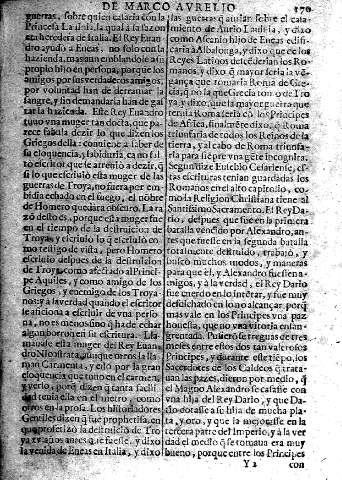 DE MARCO AVRELIO
170
guerras, sobre quien casaria con la
Princesa Lauinia, la qual a la sazon
era heredera en Italia. El Rey Euan
dro ayudo a Eneas, no solo con la
hazienda, mas aun embiandole a su
proprio hijo en persona, porque los
amigos por sus verdaderos amigos,
por voluntad han de derramar la
sangre, y sin demandarla han de gas
tar la hazienda. Este Rey Euandro
tuuo vna muger tan docta, que pa-
rece fabula dezir lo que dizen los
Griegos della: conuiene a saber de
su eloquencia, y sabiduria, ca no fal
to escritor que se atreuio a dezir, q̃
si lo que escriuio esta muger de las
guerras de Troya, no fuera por em-
bidia echado en el fuego, el nõbre
de Homero quedara obscuro. La ra
zõ desto es, porque esta muger fue
en el tiempo de la destruicion de
Troya, y escriuio lo q̃ escriuio co-
mo testigo de vista, pero Homero
escriuio despues de la destruicion
de Troya, como afectado al Princi-
pe Aquiles, y como amigo de los
Griegos, y enemigo de los Troya-
nos: y a la verdad quando el escritor
se aficiona a escriuir de vna perso-
na, no es menos sino q̃ ha de echar
algun borron en su escritura. Lla-
mauase esta muger del Rey Euan
dro Nicostrata, aunque otros la lla-
man Carmenta, y esto por la gran
eloquencia que tuuo en el carmen,
y verso, porq̃ dizen q̃ tanta facili-
dad tenia ella en el metro, como
otros en la prosa. Los historiadores
Gentiles dizen q̃ fue prophetisa, en
que prophetizo la destruicion de Tro
ya años antes que fuesse, y dixo
la venida de Eneas en Italia, y dixo
las guerras q̃ auian sobre el casa-
miento de Lauinia, y dixo
como Ascanio hijo de Eneas edifi-
caria a Albalonga, y dixo que de los
Reyes Latinos descenderian los Ro-
manos, y dixo q̃ mayor seria la vē-
gança que tomaria Roma de Gre-
cia, no la que Grecia tomo de Tro
ya, y dixo, que la mayor guerra que
ternia Roma seria con los Principes
de Africa, finalmēte dixo, q̃ Roma
triunfaria de todos los Reinos de la
tierra, y al cabo de Roma triunfa-
ria para siēpre vna gēte incognita.
Segun dize Eusebio Cesariense, es-
tas escrituras tenian guardadas los
Romanos en el alto capitolio, co-
mo la Religion Christiana tiene al
Santissimo Sacramento. El Rey Da-
rio, despues que fue en la primera
batalla vencido por Alexandro, an-
tes que fuesse en la segunda batalla
totalmente destruido, trabajò, y
buscò muchos modos, y maneras
para que el, y Alexandro fuessen a-
migos, y a la verdad, el Rey Dario
fue cuerdo en lo intētar, y fue muy
desdichado en lo no alcançar, porq̃
mas vale en los Principes vna paz
honesta, que no vna vitoria ensan-
grentada. Pusierõse treguas de tres
meses entre ellos dos tan valerosos
Principes, y durante este tiēpo, los
Sacerdotes de los Caldeos q̃ trata-
uan las pazes, dizen por medio, q̃
el Magno Alexandro se casasse con
vna hija del Rey Dario, y que Da-
rio dotasse a su hija de mucha pla-
ta, y oro, y que la mejorasse en la
tercera parte del Imperio, y a la ver
dad el medio q̃ se tomaua era muy
bueno, porque entre los Principes
Y 2
con